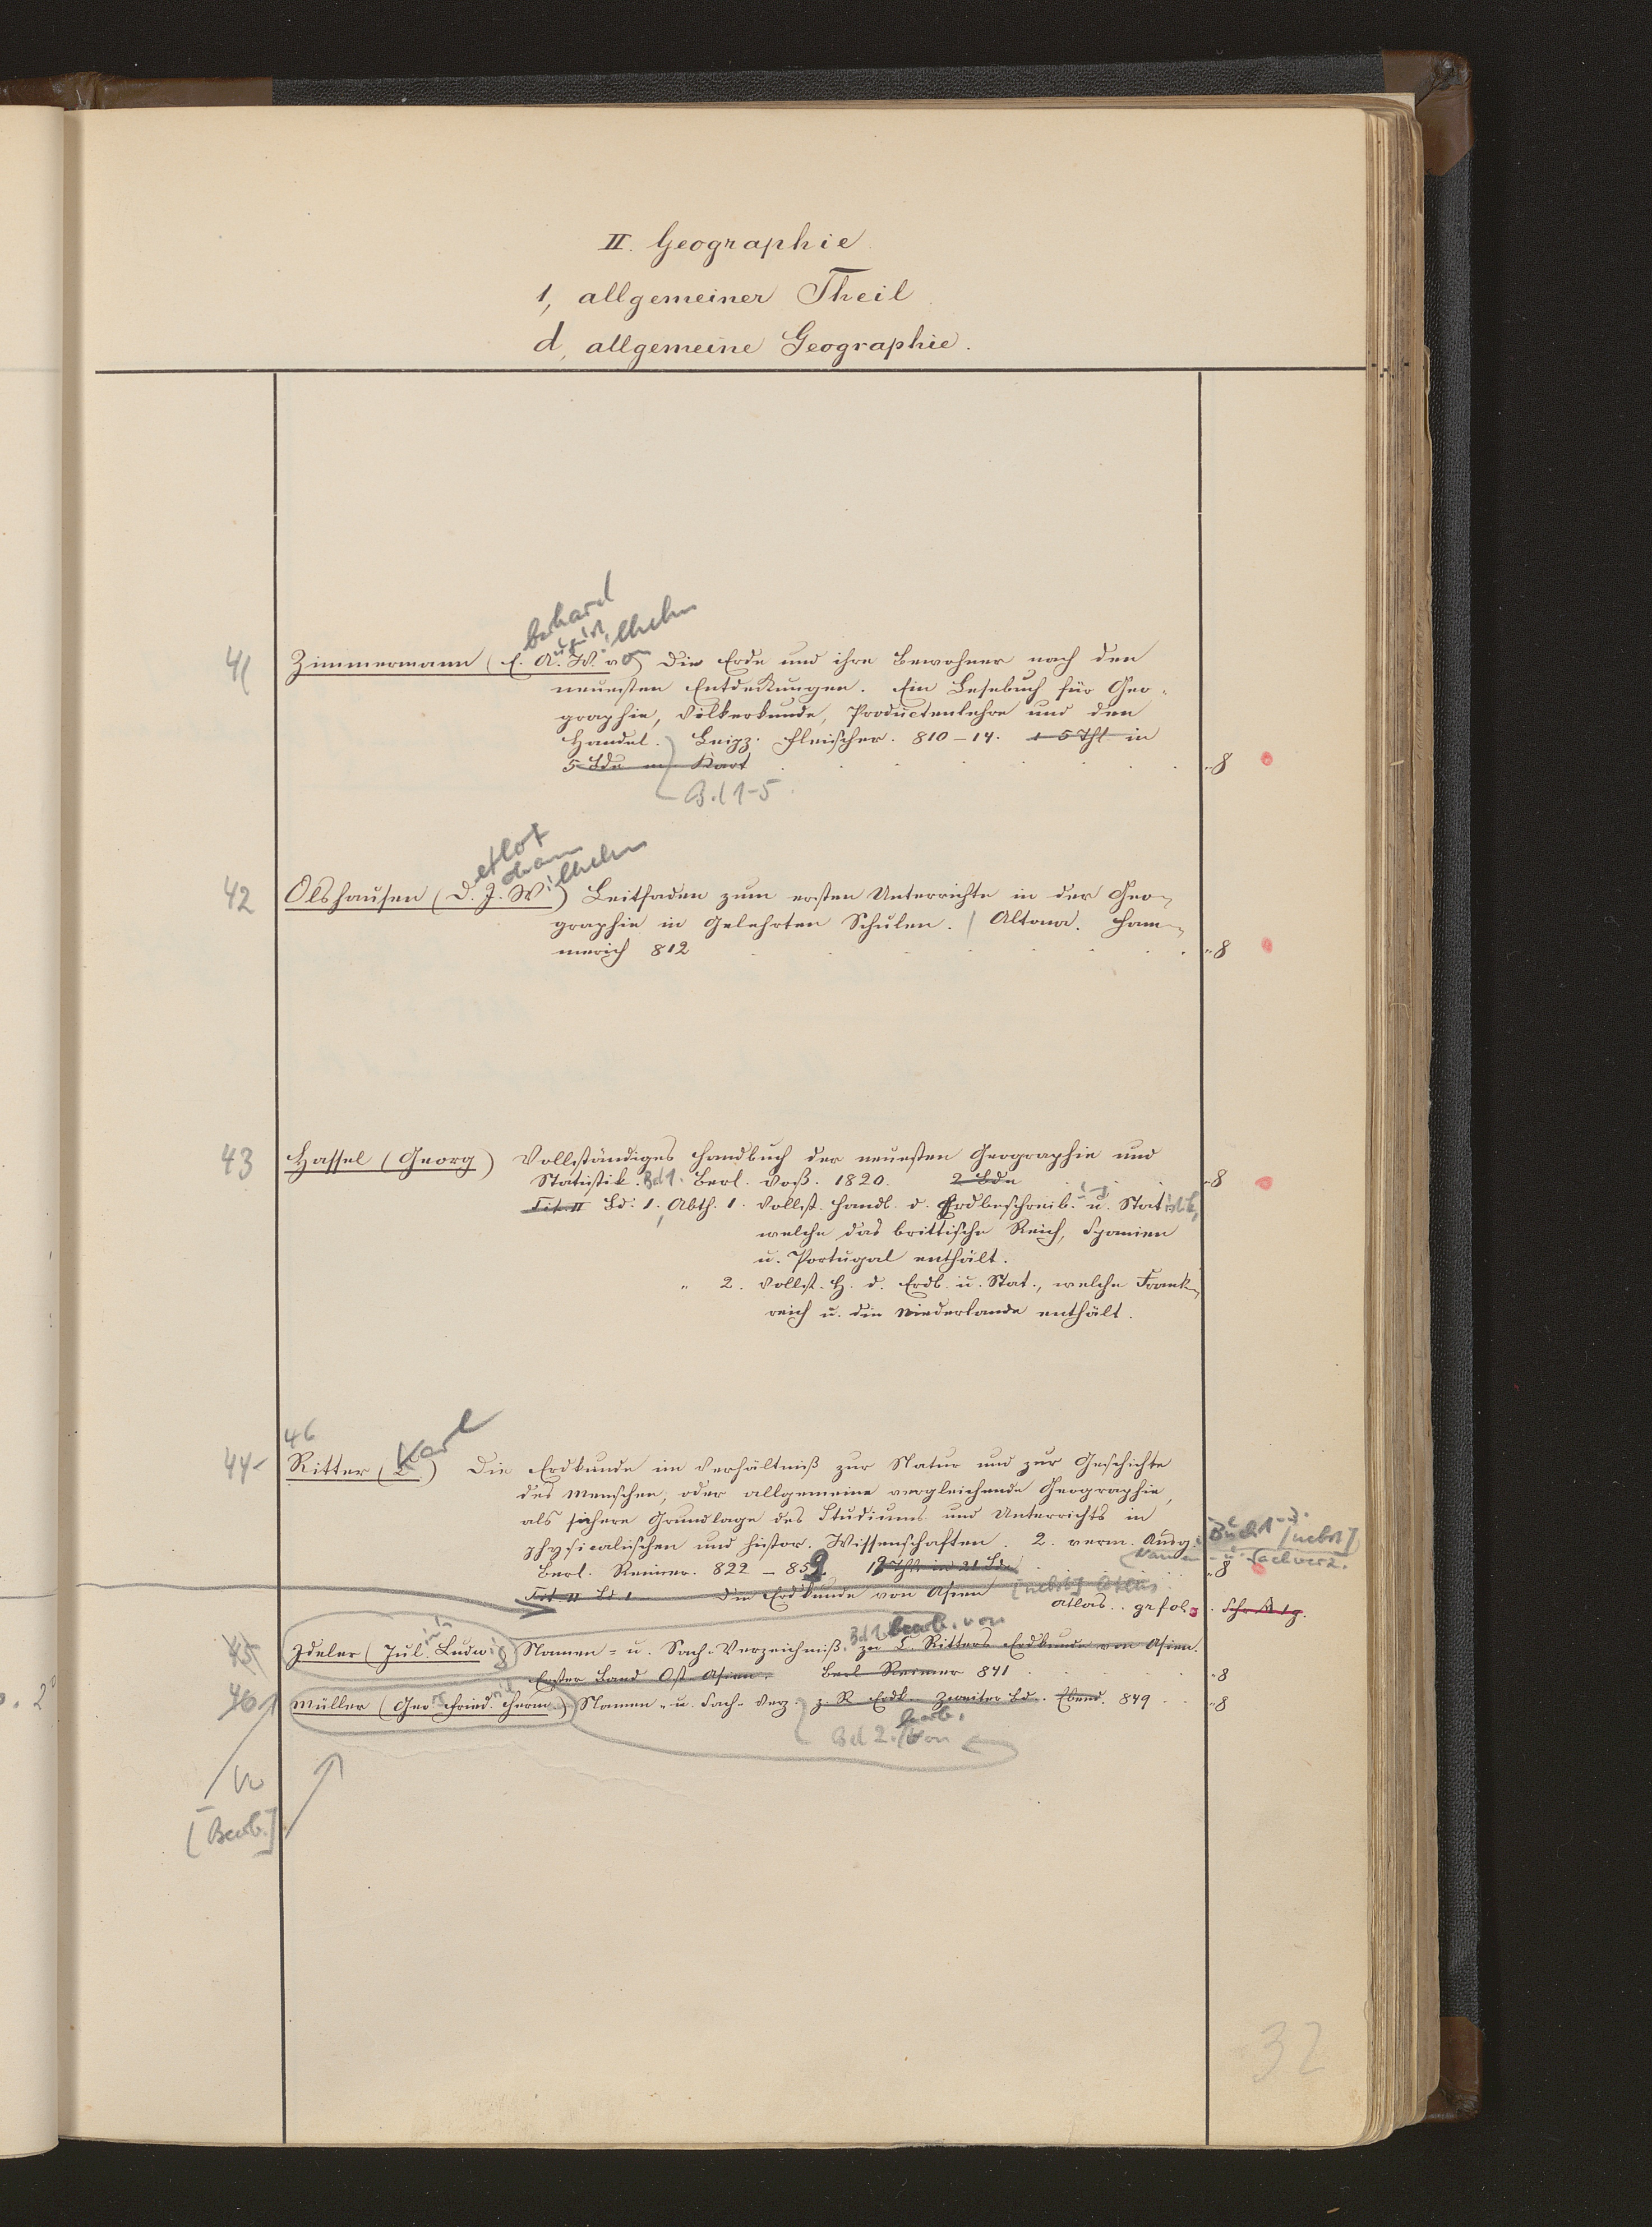 II. Geographie
1, allgemeiner Theil
d, allgemeine Geographie.
berhard
ugust ilhelm
41 Zimmermann (E. A. W. von) Die Erde und ihre Bewohner nach den
neuesten Entdeckungen. Ein Lesebuch für Geo-
graphie, Völkerkunde, Productenlehre und den
Handel. Leipz. Fleischer. 810-14. 1-5 Thl. in
5 Bde m. Kart ..8
Bd 1-5
etlof
ohann ilhelm
42 Olshausen (D. J. W.) Leitfaden zum ersten Unterrichte in der Geo-
graphie in Gelehrten Schulen. / Altona. Ham-
merich 812 ..8
43 Hassel (Georg) Vollständiges Handbuch der neuesten Geographie und
Statistik. Bd 1. Berl. Voß. 1820. 2 Bde ..8
Tit. II Bd: 1, Abth. 1. Vollst. Handb. d. Erdbeschreib. u. Statistik,
welche das brittische Reich, Spanien
u. Portugal enthält.
" 2. Vollst. H. d. Erdb. u. Stat., welche Frank-
reich u. die Niederlande enthält.
46
44 Ritter (Karl) Die Erdkunde im Verhältniß zur Natur und zur Geschichte
des Menschen, oder allgemeine vergleichende Geographie,
als sichere Grundlage des Studiums und Unterrichts in
physicalischen und histor. Wissenschaften. 2. verm. Ausg. Buch 1-3. [nebst]
Namen- u. Sachverz.
Berl. Reimer. 822-859. 19 Thle in 21 Bde ..8
Tit. II Bd 1 Die Erdkunde von Asien [nebst] Atlas
Atlas.. gr fol.
45 Ideler (Julius Ludwig) Namen- u. Sach-Verzeichniß. Bd 1 bearb. von zu C. Ritters Erdkunde von Asien.
Erster Band Ost-Asien. Berl Reimer 841 ..8
46 Müller (Geo Fried. Herm.) Namen- u. Sach-Verz. z. R Erdk. Zweiter Bd. Ebend. 849 ..8
bearb.
Bd 2. von
[Bearb.]
32